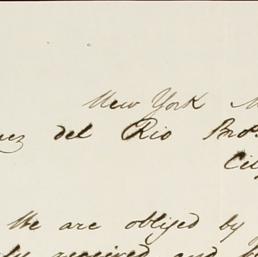 New York M
nez del Rio Bros
City
We are obliged by y
received and